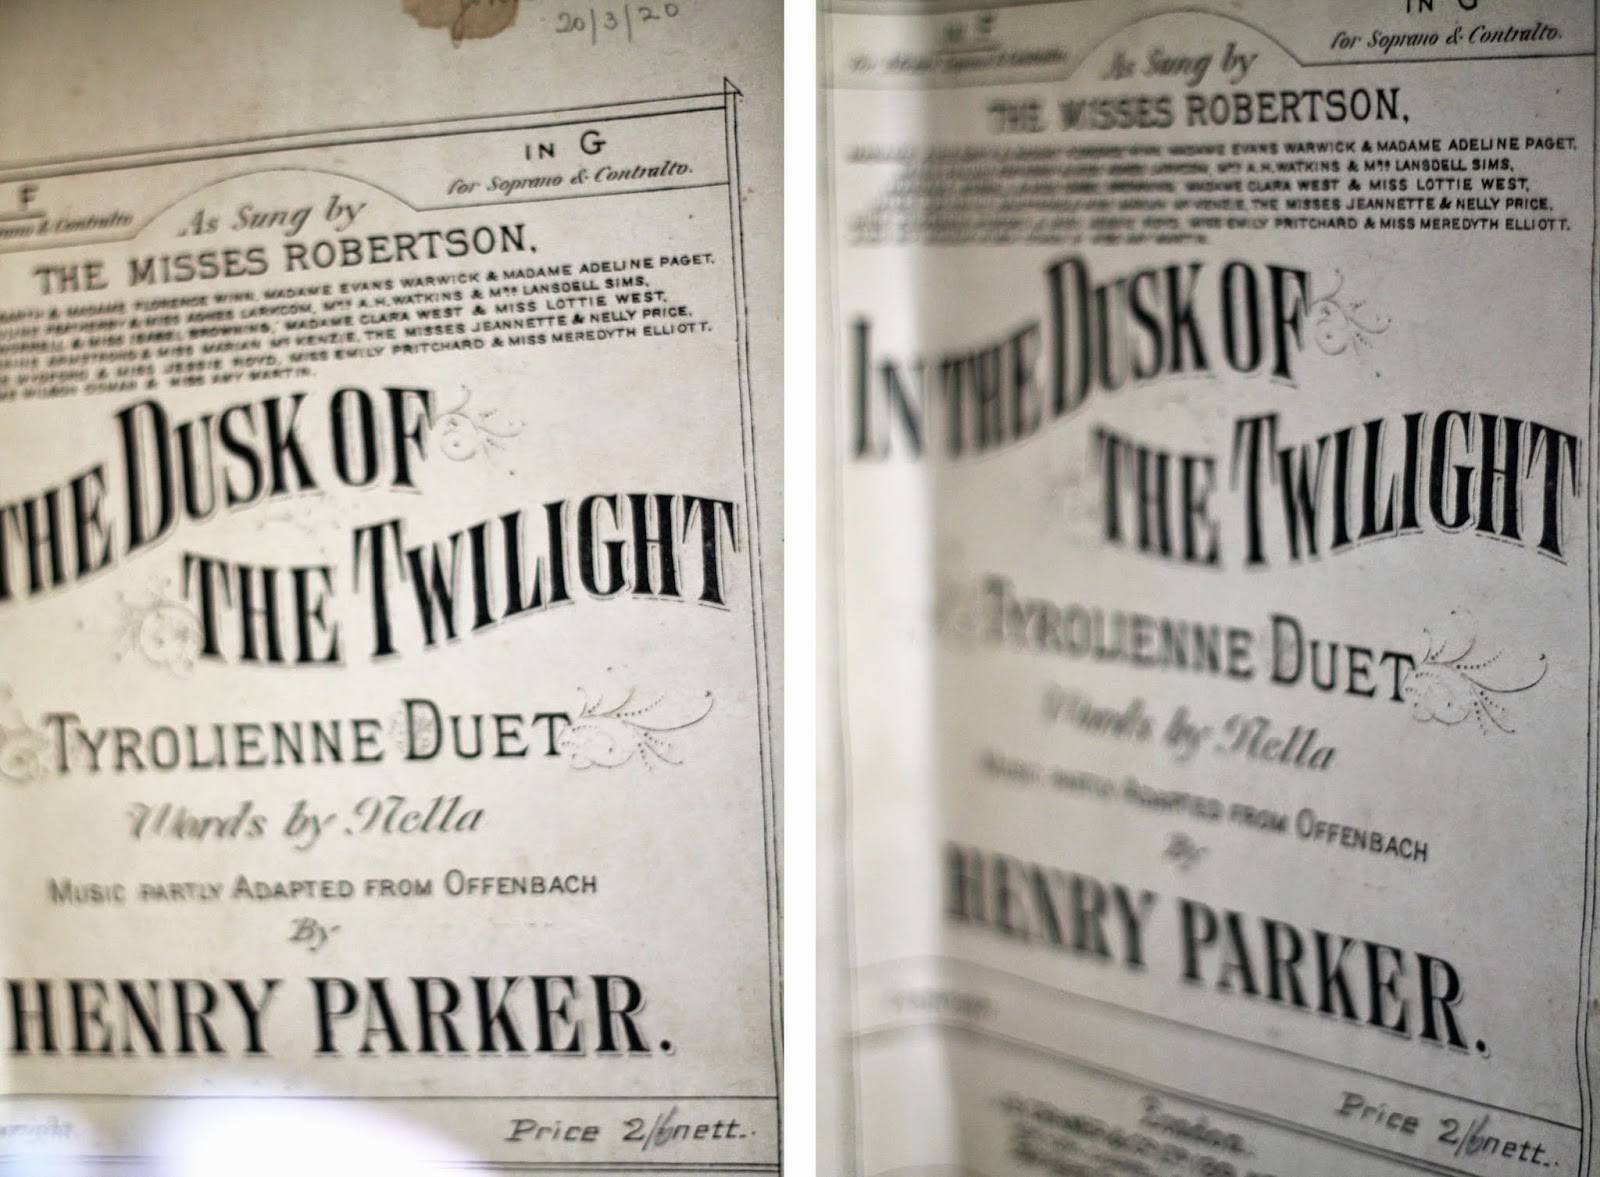 20/3/20
F
IN G
for Soprano & Contralto.
As Sung by
THE MISSES ROBERTSON,
& MADAME FLORENCE WINN, MADAME EVANS WARWICK & MADAME ADELINE PAGET,
& MISS AGNES LARKCOM, MRS A.H. WATKINS & MRS LANSDELL SIMS,
& MISS ISABEL BROWNING, MADAME CLARA WEST & MISS LOTTIE WEST,
ARMSTRONG & MISS MARIAN MCKENZIE, THE MISSES JEANNETTE & NELLY PRICE,
& MISS JESSIE ROYD, MISS EMILY PRITCHARD & MISS MEREDYTH ELLIOTT.
& MISS AMY MARTIN.
THE DUSK OF
THE TWILIGHT
TYROLIENNE DUET
Words by Nella
MUSIC PARTLY ADAPTED FROM OFFENBACH
By
HENRY PARKER.
Price 2/6 nett.
IN G
for Soprano & Contralto.
As Sung by
THE MISSES ROBERTSON,
MADAME EVANS WARWICK & MADAME ADELINE PAGET,
MRS A.H. WATKINS & MRS LANSDELL SIMS,
MADAME CLARA WEST & MISS LOTTIE WEST,
THE MISSES JEANNETTE & NELLY PRICE,
MISS EMILY PRITCHARD & MISS MEREDYTH ELLIOTT.
IN THE DUSK OF
THE TWILIGHT
TYROLIENNE DUET
Words by Nella
MUSIC PARTLY ADAPTED FROM OFFENBACH
By
HENRY PARKER.
Price 2/6 nett.
London.